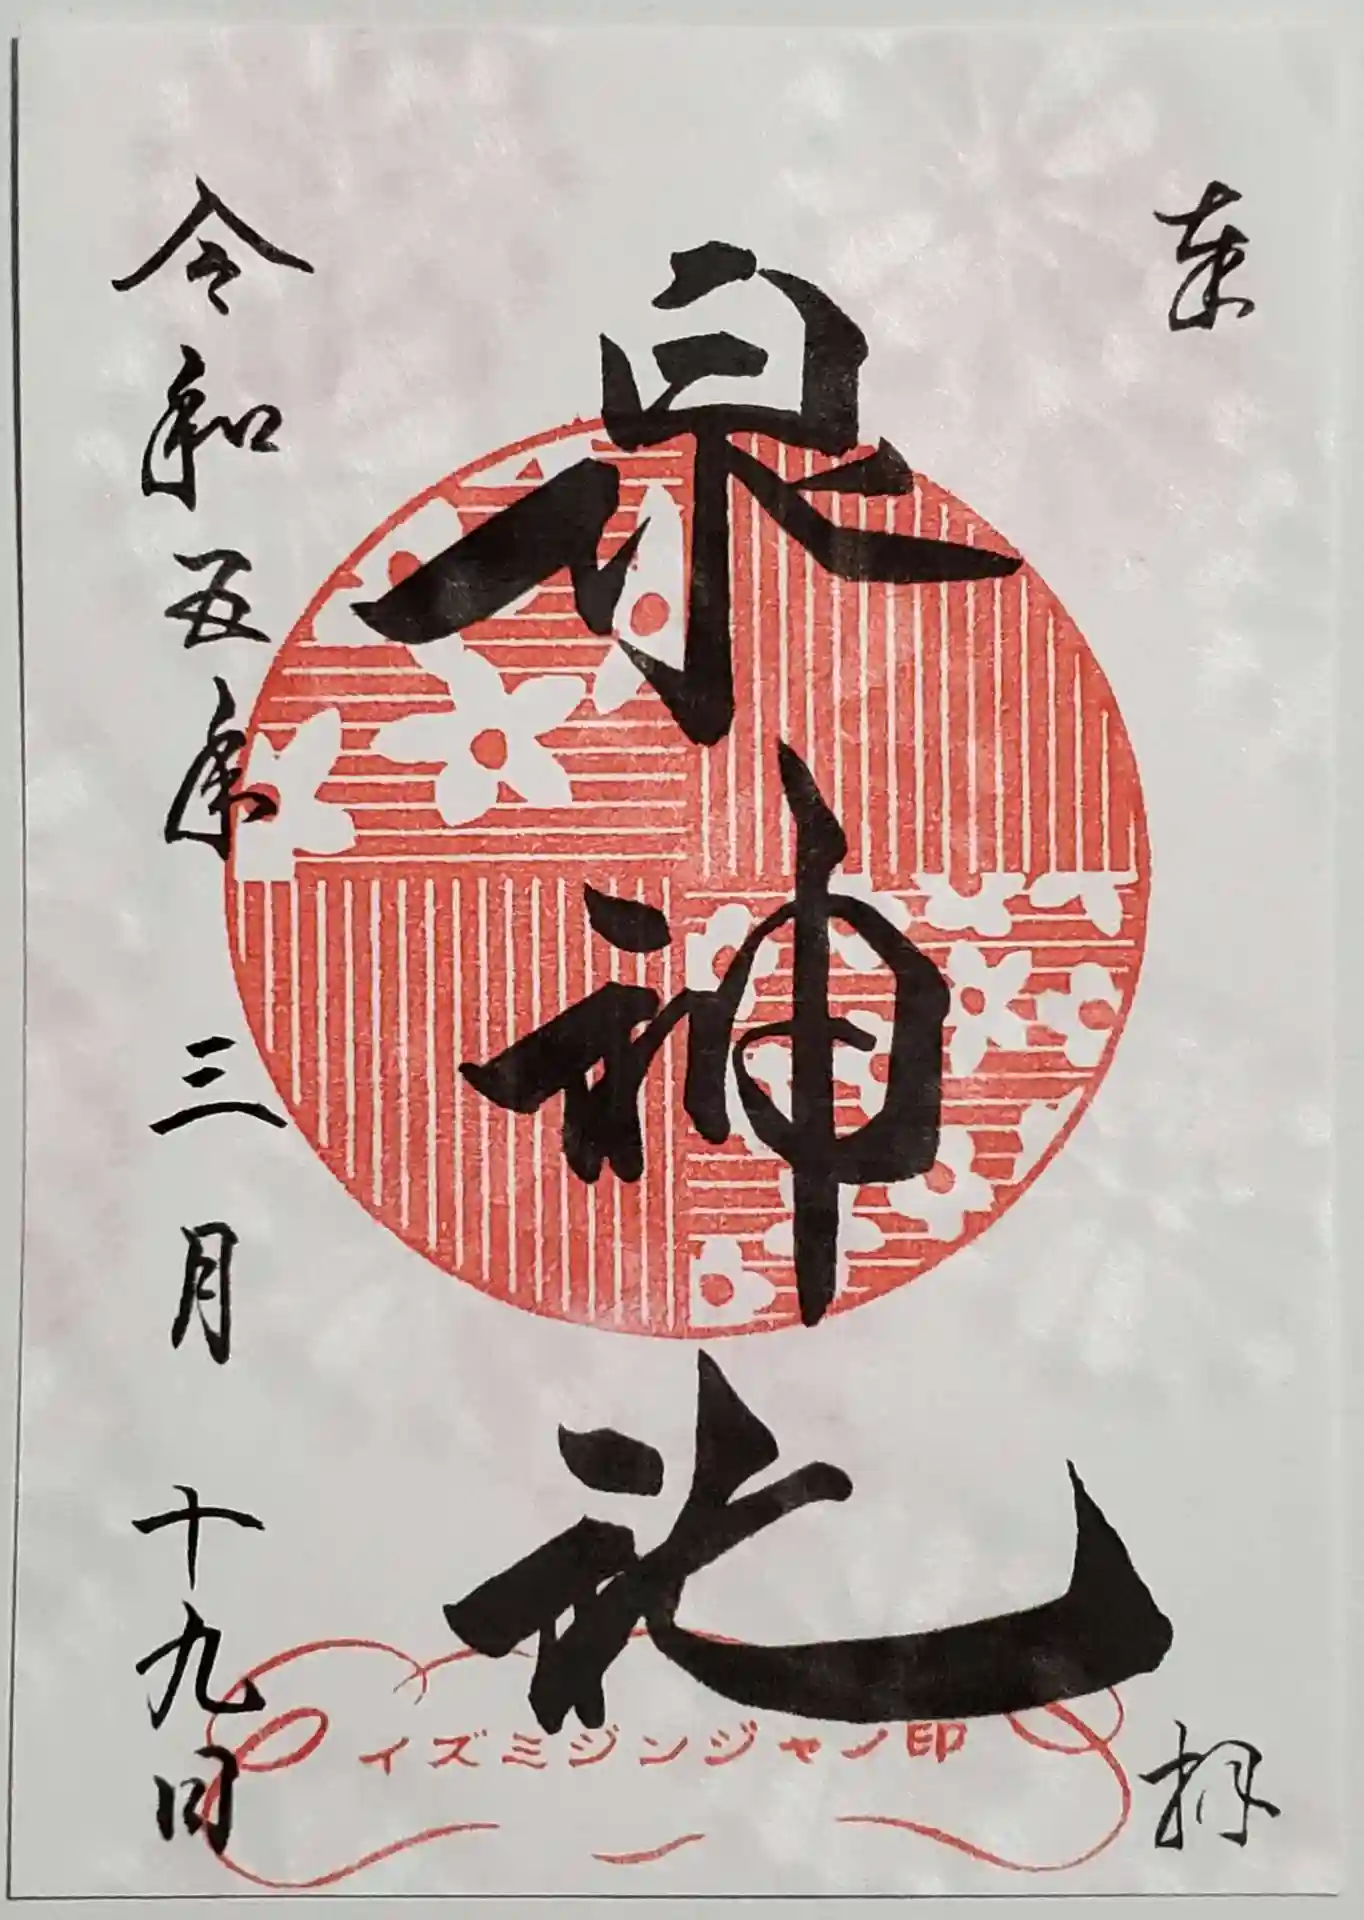 奉拝
泉神社
令和五年三月十九日
イズミジンジャノ印